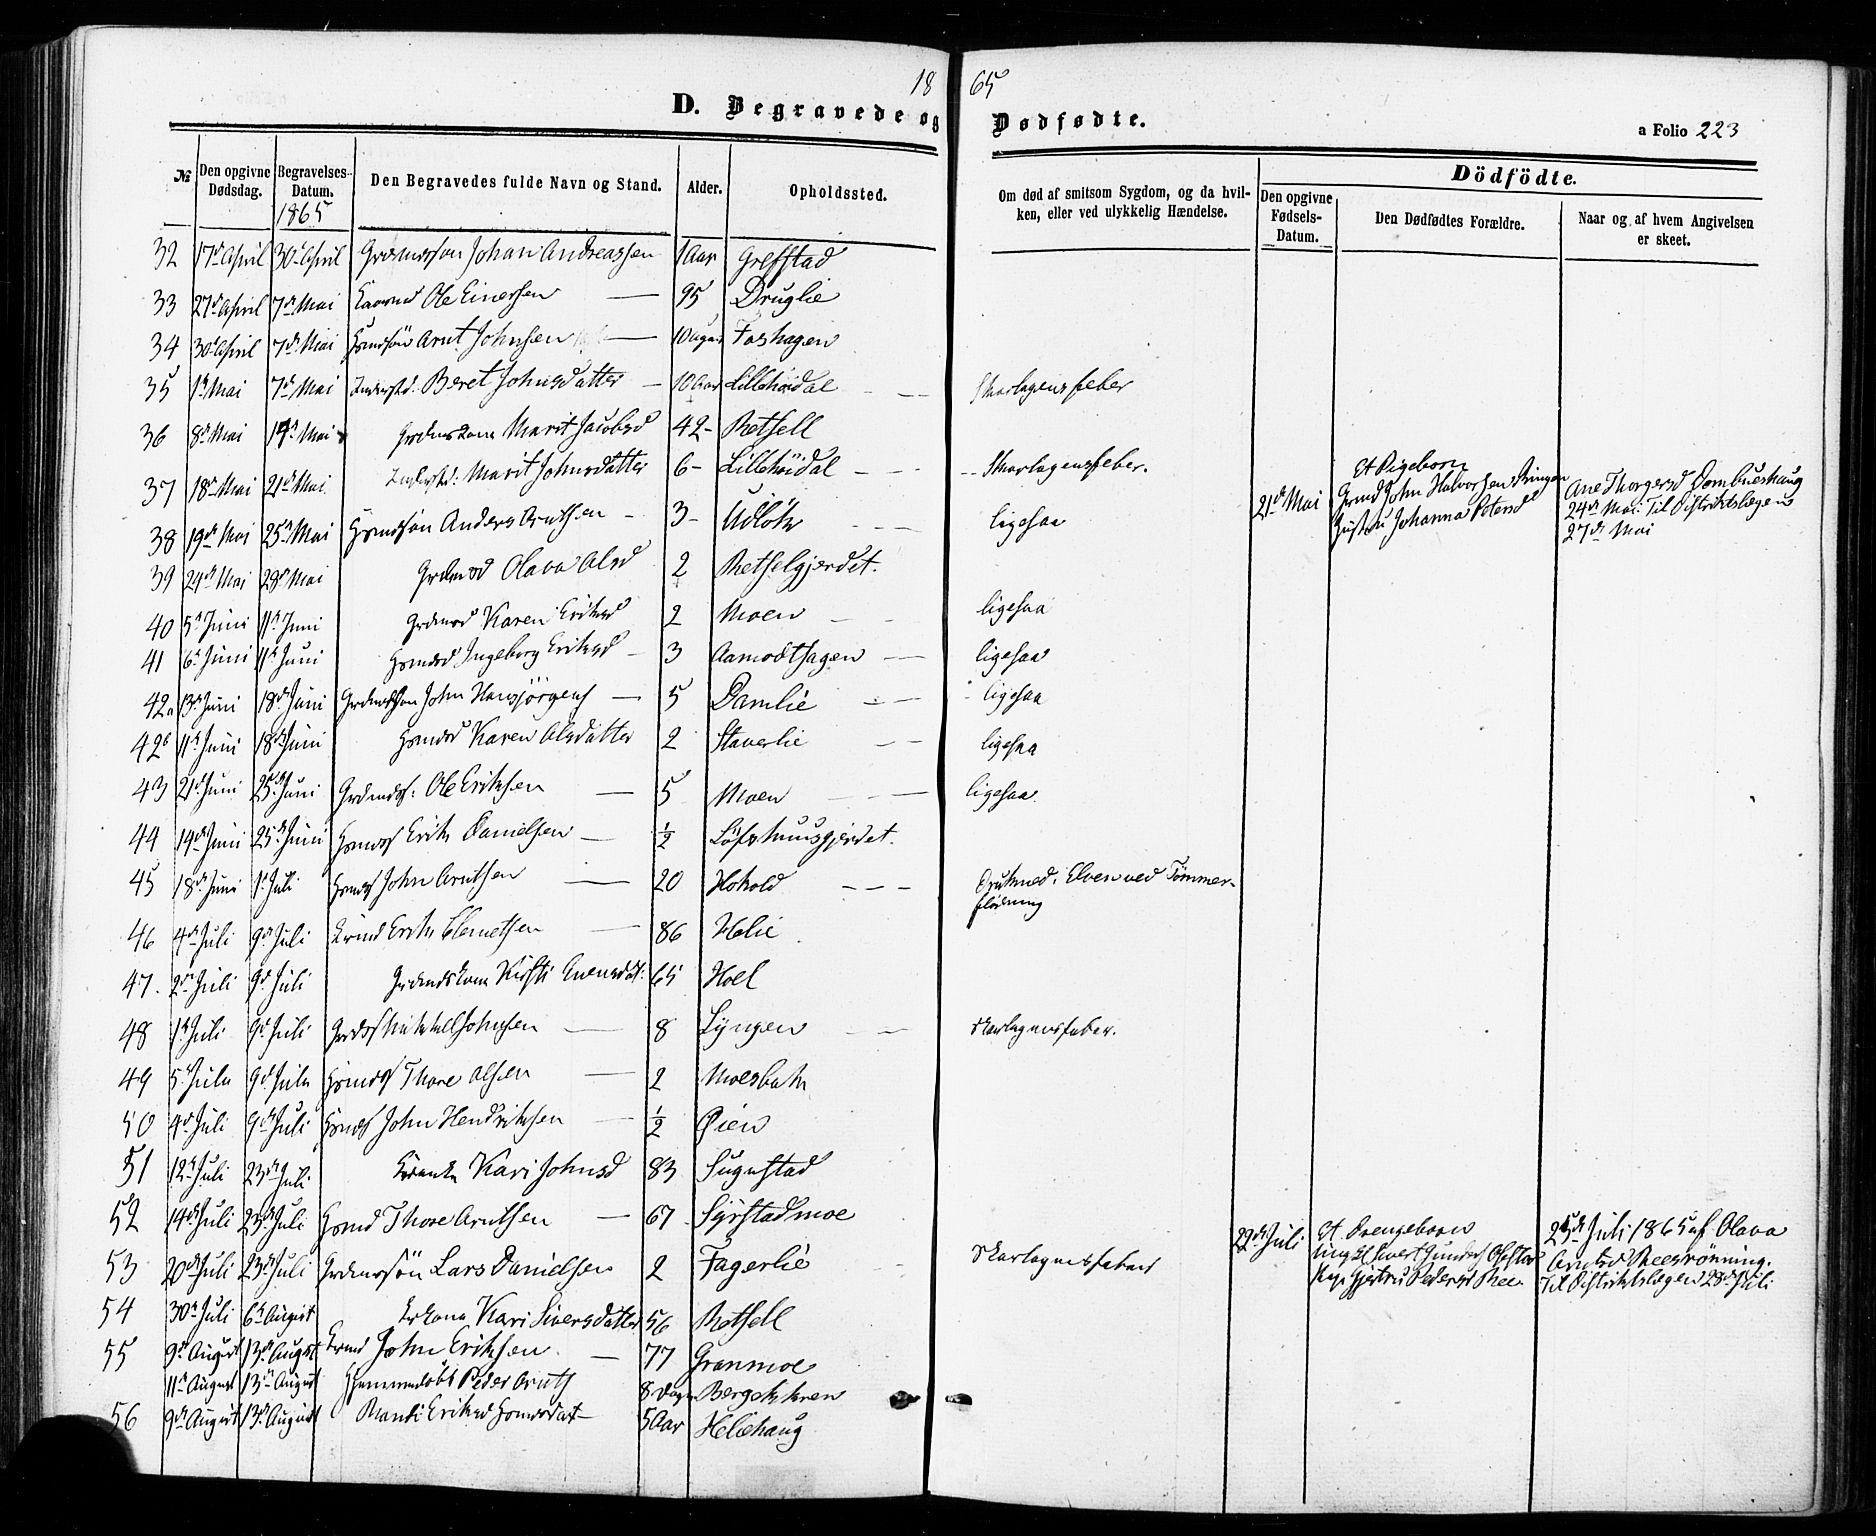 1865
D. Begravede og Dødfødte.
a Folio 223
№
Den opgivne Dødsdag.
Begravelses-Datum.
1865
Den Begravedes fulde Navn og Stand.
Alder.
Opholdssted.
Om død af smitsom Sygdom, og da hvilken, eller ved ulykkelig Hændelse.
Dödfödte.
Den opgivne Fødsels-Datum.
Den Dødfødtes Forældre.
Naar og af hvem Angivelsen er skeet.
32 17de April 30te April Grdmdssøn Johan Andreassen 1 Aar Grefstad
33 27de April 7de Mai Ole Einersen 95 Druglie
34 30te April 7de Mai Hsmdssön Arnt Johnsen Foshagen
35 1te Mai 7de Mai Inderstd: Beret Johnsdatter 10 Aar Lillehöidal Skarlagensfeber
36 8de Mai 14de Mai Grdmdskone Marit Jacobsd 42 Retsell
37 18de Mai 21de Mai Inderstd: Marit Johnsdatter 6 Lillehöidal Skarlagensfeber.
21de Mai Et Pigebarn
Grmd John Halvorsen Ringen
Hustru Johanna
Ane Thorgersd Dombueshaug
24de Mai: Til Distriktslægen
27de Mai
38 19de Mai 25de Mai Hsmdssön Anders Arntsen 3 ligesaa
39 24de Mai 28de Mai Grdmd Olava Olsd 2 Retselgjerdet.
40 5te Juni 11te Juni Grdmd Karen Eriksd 2 Moen ligesaa
41 6te Juni 11te Juni Hsmdsd Ingeborg Eriksd 3 Aamodthagen ligesaa
42a 13de Juni 18de Juni Grdmdssøn John Hansjörgens 5 Damlie ligesaa
42b 11te Juni 18de Juni Hsmdsd Karen Olsdatter 2 Staverlie ligesaa
43 21de Juni 25de Juni Grdmdss: Ole Eriksen 5 Moen ligesaa
44 14de Juni 25de Juni Hsmdss Erik Danielsen ½ Löfshuusgjerdet.
45 18de Juni 1te Juli Hsmdss John Arntsen 20 Hokold Drukned i Elven ved Tömmerflödning
46 4de Juli 9de Juli Erik Clemetsen 86 Helie
47. 2den Juli 9de Juli Grdmdskone Kirsti Evensdat: 65 Hoel
48 1te Juli 9de Juli Johnsen 8 Lyngen Skarlagensfeber.
49 5te Julu 9de Julu Hsmdss Thore Olsen 2 Moesbak
50 4de Juli 9de Juli Hsmdss John Hendriksen ½ Öien
51 12te Juli 23de Juli Kari Johnsd 83 Sugustad
52 14de Juli 23de Juli Hsmd Thore Arntsen 67 Syrstadmoe
22de Juli Et Drengebarn
25de Juli 1865 af Olava
53 20de Juli 23de Juli Grdmdssön Lars Danielsen 2 Fagerlie Skarlagensfeber
Arntsd Reesrönning.
Til Distriktslægen 28de Juli
Pige Gjertru Pedersd Ree
54 30te Juli 6te August Kari Siversdatter 56 Retsell
55 9de August 13de August John Eriksen. 77 Granmoe
11te August 13de August Hjemmedöbt Peder Arnts 8 Dage
56 9de August 13de August Randi Eriksd Hsmdsdat 5 Aar Heliehaug